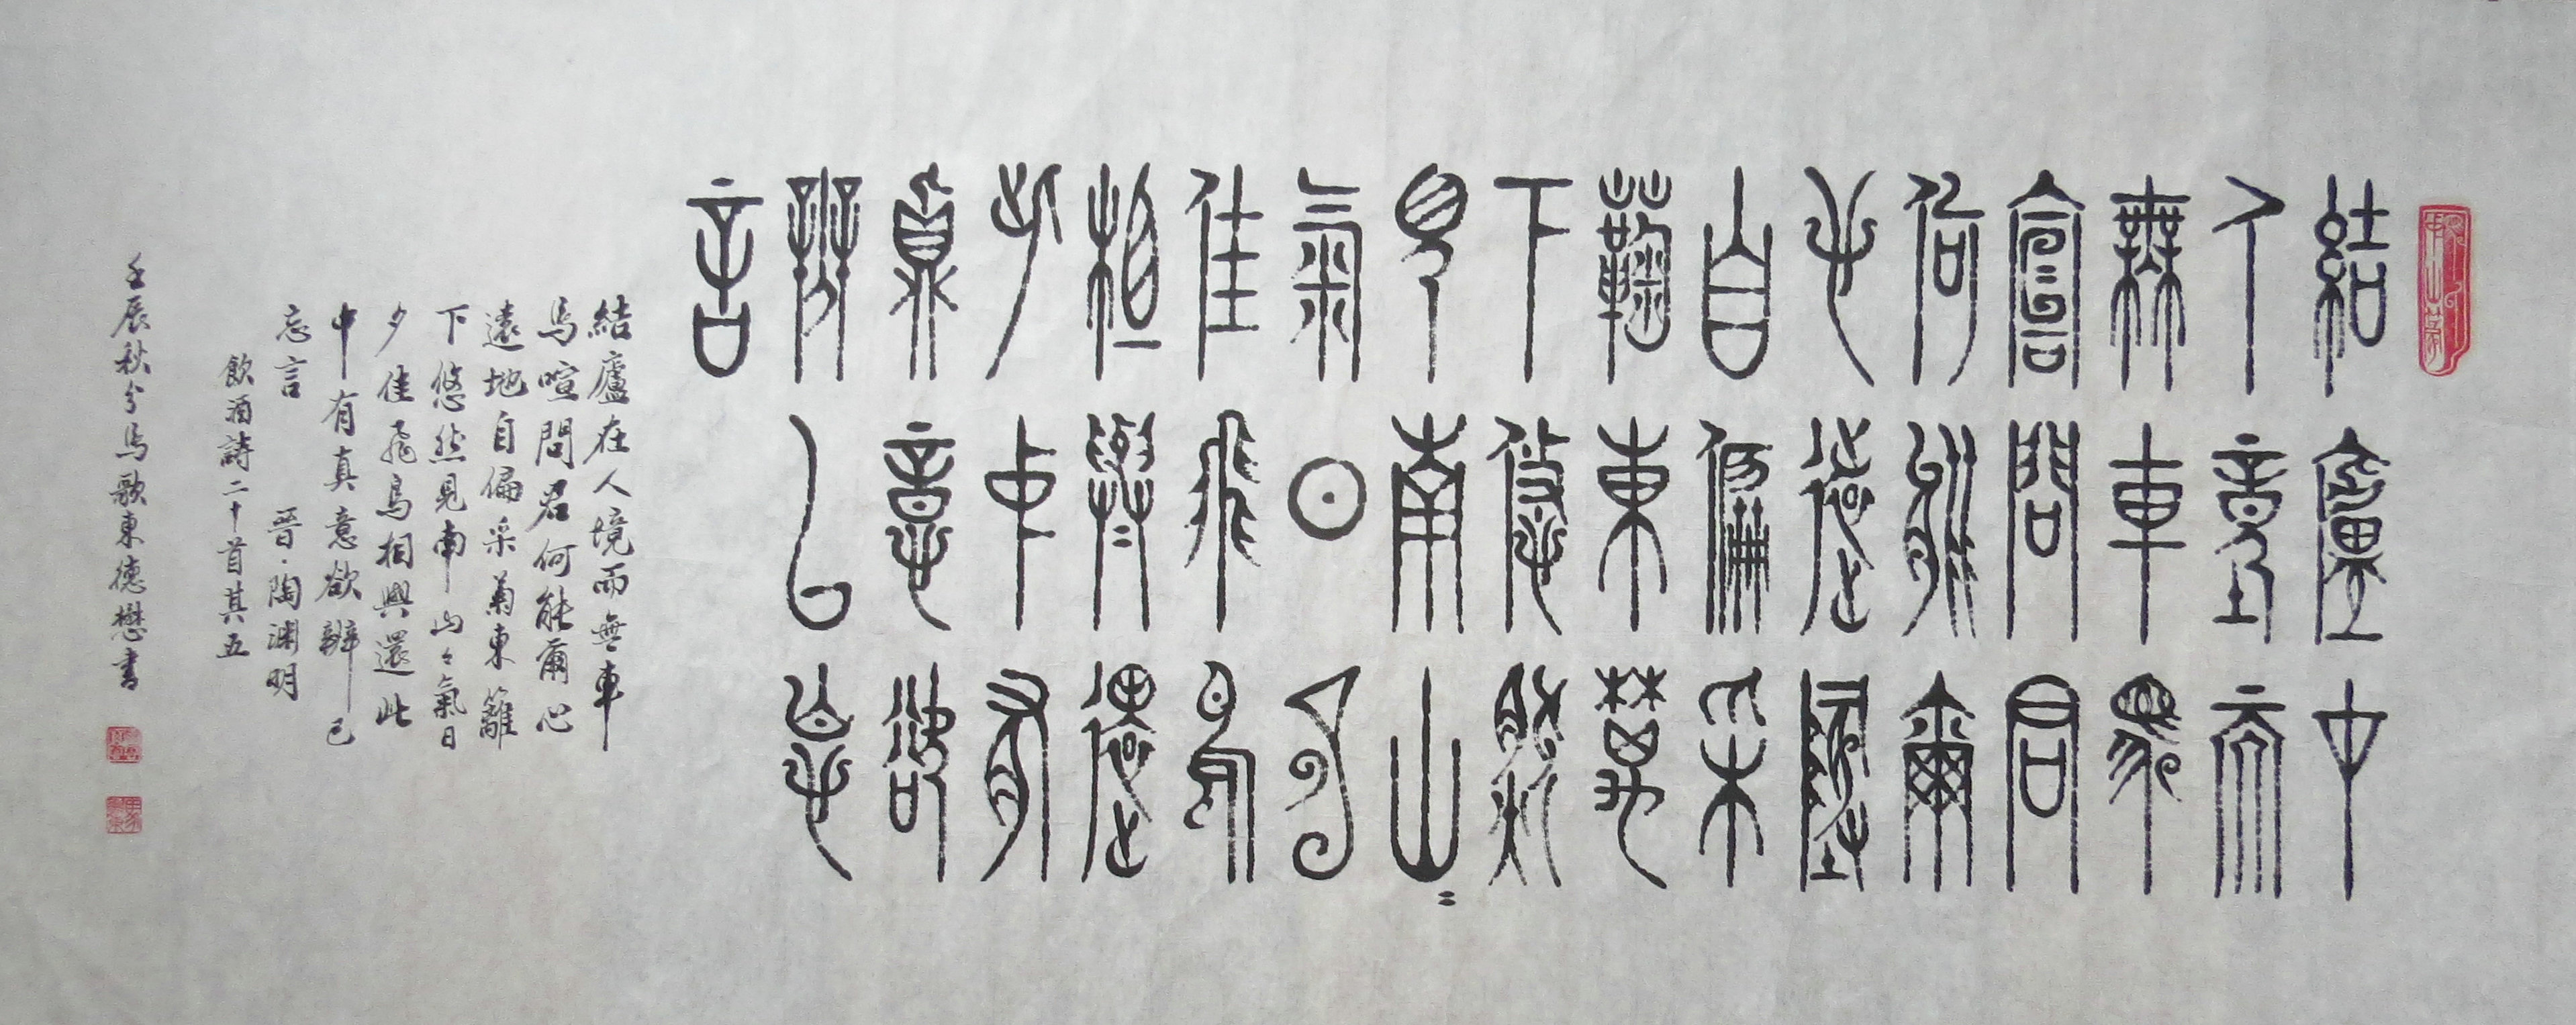 結廬在
人境而
無車馬
喧問君
何能爾
心遠地
自偏采
菊東籬
下悠然
見南山〻
氣日夕
佳飛鳥
相與還
此中有
真意欲
辨已忘
言
結廬在人境而無車
馬喧問君何能爾心
遠地自偏采菊東籬
下悠然見南山〻氣日
夕佳飛鳥相與還此
中有真意欲辨已
忘言 晉·陶淵明
飲酒詩二十首其五
壬辰秋分馬歌東德懋書